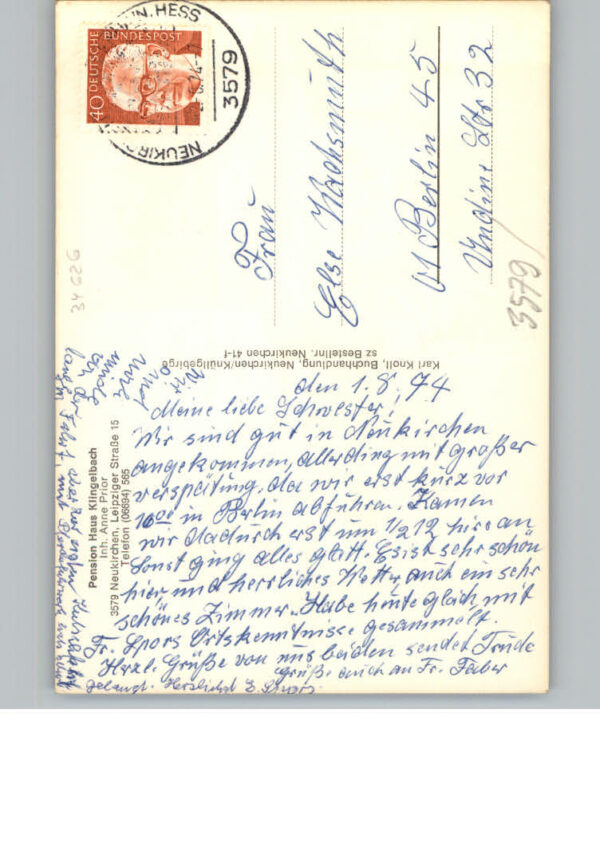 DEUTSCHE BUNDESPOST
40
NEUKIRCHEN
3579
Frau
Else Wachsmuth
1 Berlin 45
Undine Str 32
3579
34626
Karl Knoll, Buchhandlung, Neukirchen/Knüllgebirge
sz Bestellnr. Neukirchen 41-f
Pension Haus Klingelbach
Inh. Anne Prior
3579 Neukirchen, Leipziger Straße 15
Telefon (06694) 565
den 1.8.74
Meine liebe Schwester!
Wir sind gut in Neukirchen
angekommen, allerding mit großer
verspäitung, da wir erst kurz vor
10.00 in Berlin abfuhren. Kamen
wir dadurch erst um 1/2 12 hire an
Sonst ging alles glatt. Es ist sehr schön
hier, und herrliches Wetter, auch ein sehr
schönes Zimmer. Habe heute gleich mit
Fr. Spors Ortskenntnisse gesammelt.
Herzl. Grüße von uns beiden sendet Trude
Grüße auch an Fr. Faber
Wir sind
von der Fahrt
gelangt. Herzlichst E. Spors